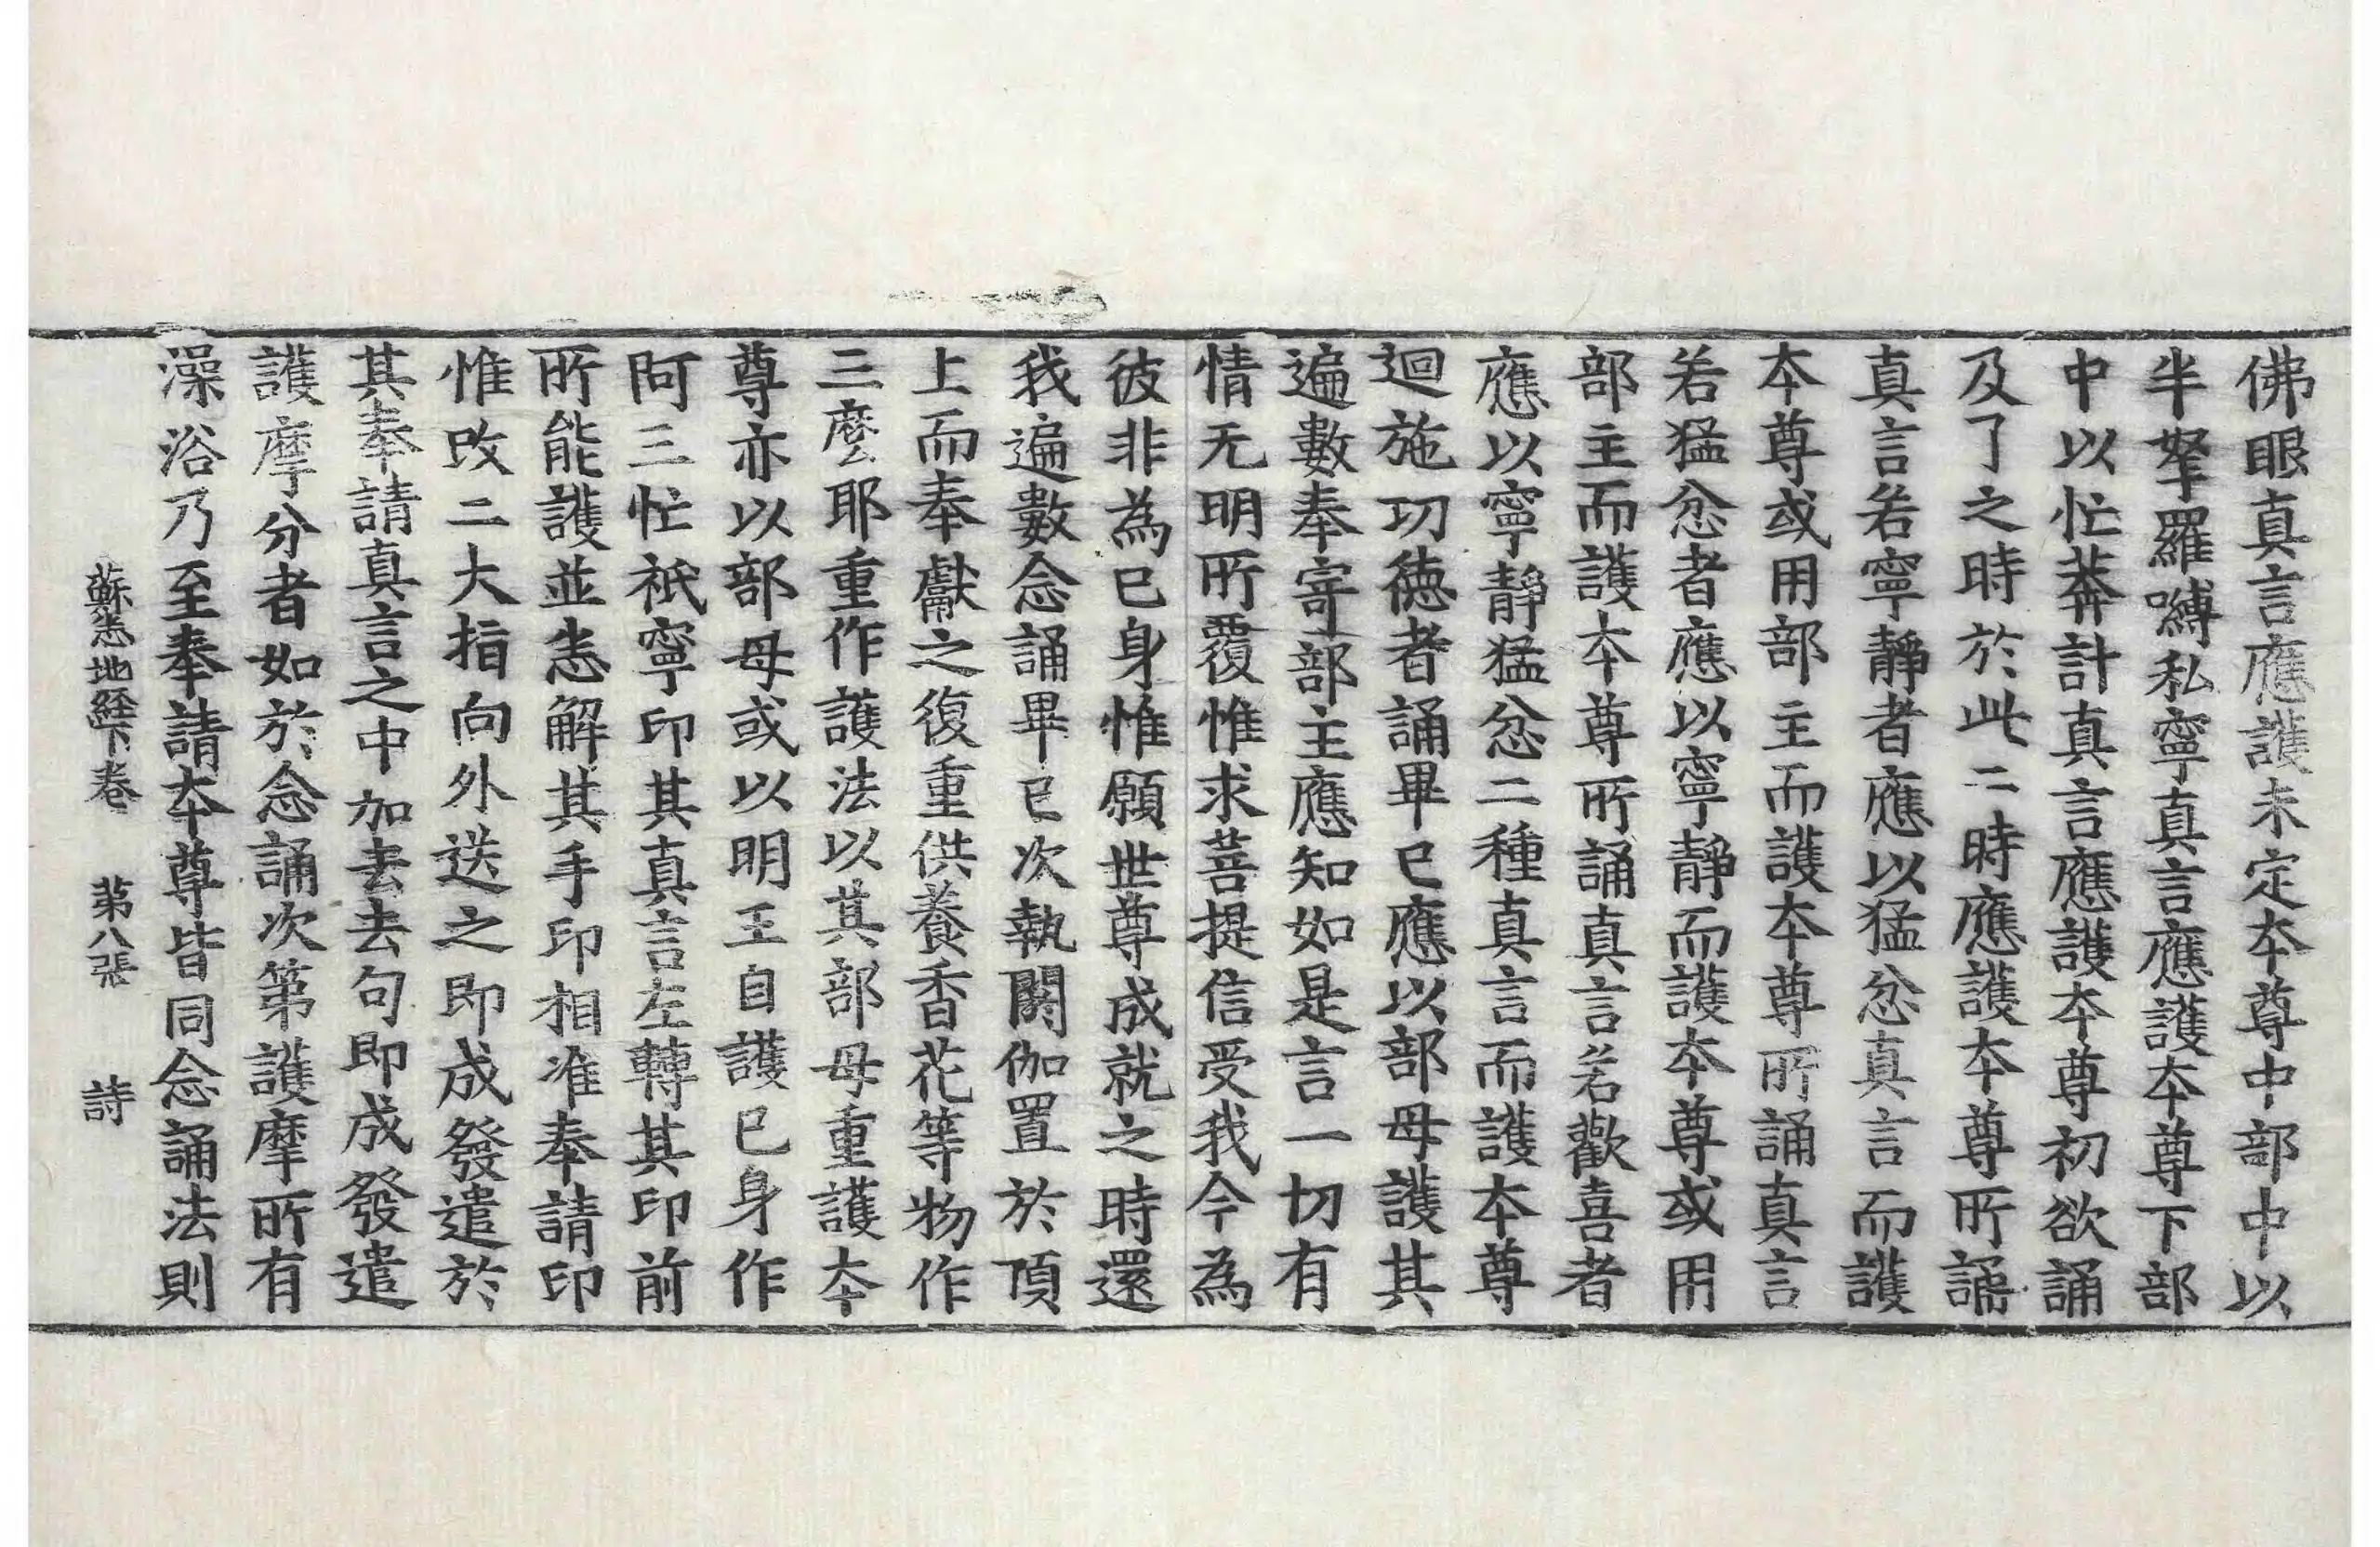 佛眼真言應護未定本尊中部中以
半拏羅嚩私寧真言應護本尊下部
中以忙莽計真言應護本尊初欲誦
及了之時於此二時應護本尊所誦
真言若寧靜者應以猛忿真言而護
本尊或用部主而護本尊所誦真言
若猛忿者應以寧靜而護本尊或用
部主而護本尊所誦真言若歡喜者
應以寧靜猛忿二種真言而護本尊
迴施功徳者誦畢已應以部母護其
遍數奉寄部主應知如是言一切有
情无明所覆惟求菩提信受我今為
彼非為已身惟願世尊成就之時還
我遍數念誦畢已次執閼伽置於頂
上而奉獻之復重供養香花等物作
三麼耶重作護法以其部母重護本
尊亦以部母或以明王自護已身作
阿三忙祇寧印其真言左轉其印前
所能護並悉解其手印相准奉請印
惟改二大指向外送之即成發遣於
其奉請真言之中加去去句即成發遣
護摩分者如於念誦次第護摩所有
澡浴乃至奉請本尊皆同念誦法則
蘇悉地経下卷 第八張 詩